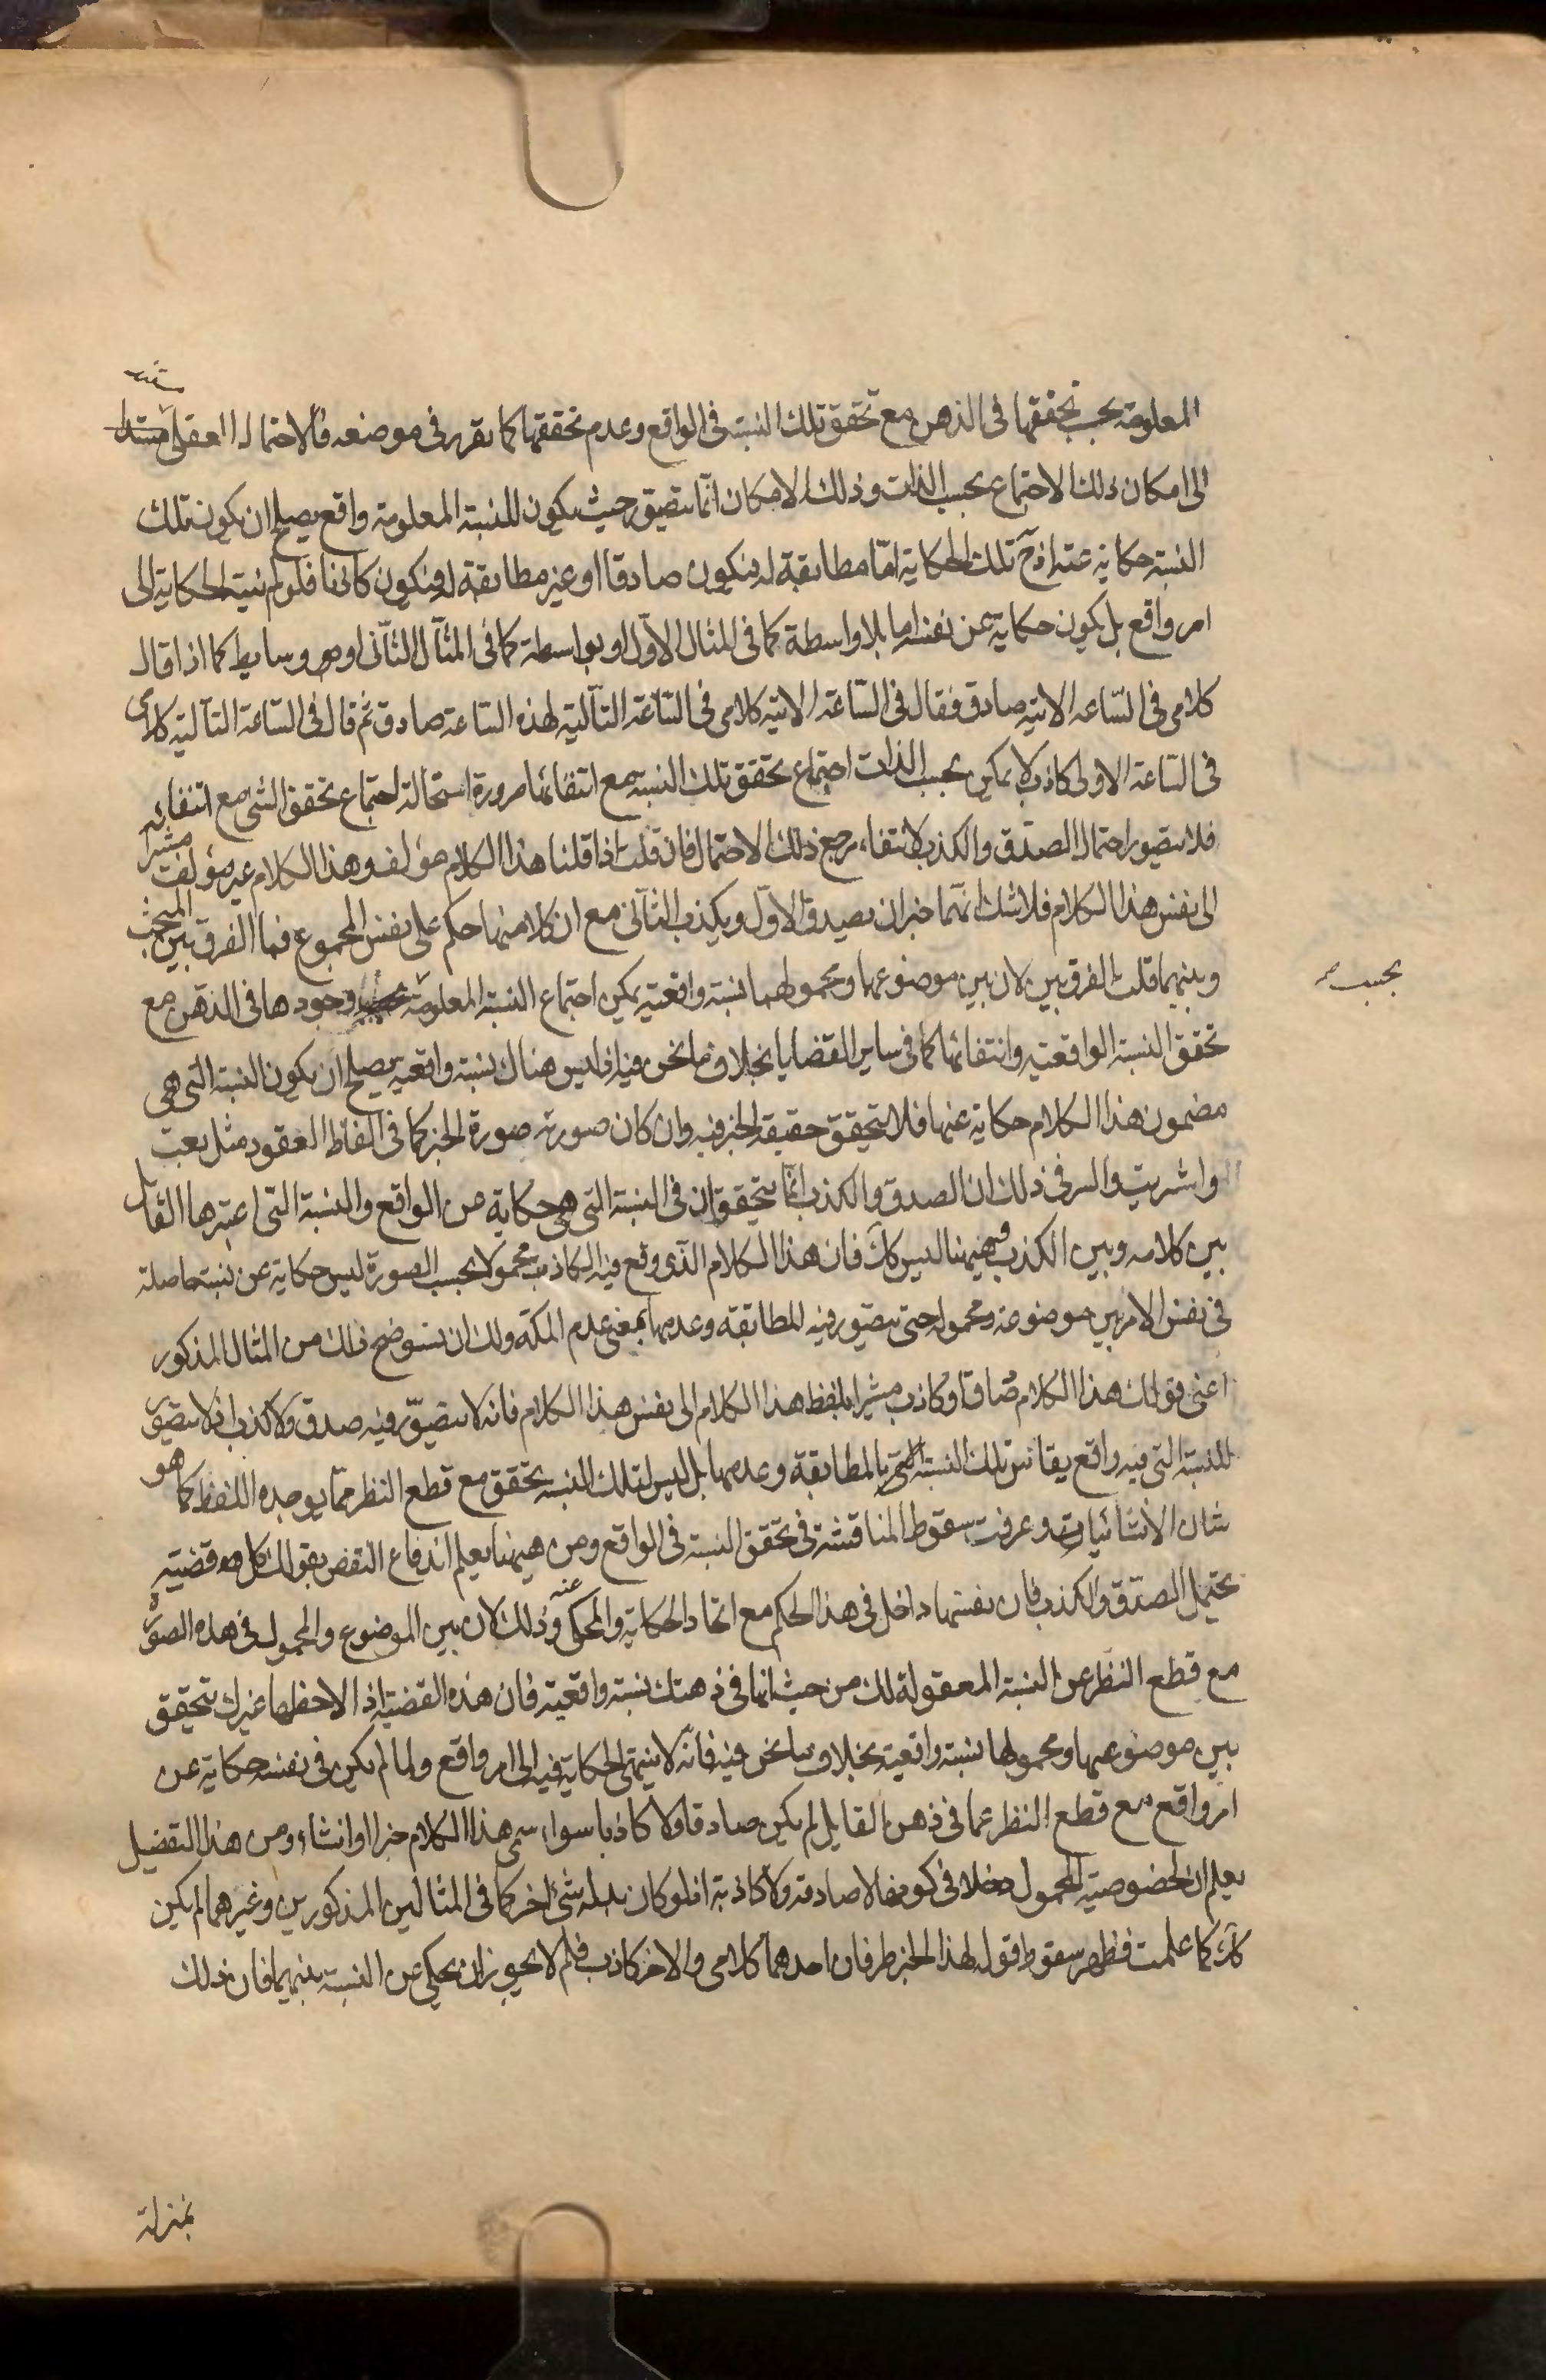 المعلومة بحسب تحققها فى الذهن مع تحقق تلك النسبة فى الواقع وعدم تحققها كما تقرر فى موضعه فالاحتمال العقلى مستند
الى امكان ذلك الاجتماع بحسب الذات وذلك الامكان انما يتصور حيث يكون للنسبة المعلومة واقع يصلح ان يكون تلك
النسبة حكاية عنه اذ ح تلك الحكاية اما مطابقة له فيكون صادقا او غير مطابقة له فيكون كاذبا فلو لم ينته الحكاية الى
امر واقع بل يكون حكاية عن نفسها بلا واسطة كما فى المثال الاول او بواسطة كما فى المثال الثانى او وسايط كما اذا قال
كلامى فى الساعه الاتيه صادق فقال فى الساعة الاتية كلامى فى الساعة التالية لهذه الساعة صادق ثم قال فى الساعة التالية كلامى
فى الساعة الاولى كاذب لا يمكن بحسب الذات اجتماع تحقق تلك النسبة مع انتفائها ضرورة استحالة اجتماع تحقق الشى مع انتفائه
فلا يتصور احتمال الصدق والكذب لانتفاء مرجع ذلك الاحتمال فان قلت اذا قلنا هذا الكلام مؤلف وهذا الكلام غير مؤلف مشيرا
الى نفس هذا الكلام فلا شك انهما خبران يصدق الاول ويكذب الثانى مع ان كلا منهما حكم على نفس المجموع فما الفرق بين المبحث
وبينهما قلت الفرق بين لان بين موضوعهما ومحمولهما نسبة واقعية يمكن اجتماع النسبة المعلومة وجودها فى الذهن مع
بحسب
تحقق النسبة الواقعية وانتفائها كما فى ساير القضايا بخلاف ما نحن فيه اذ ليس هناك نسبة واقعية يصلح ان يكون النسبة التى هى
مضمون هذا الكلام حكاية عنها فلا يتحقق حقيقة الخبر فيه وان كان صورته صورة الخبر كما فى الفاظ العقود مثل بعت
واشتريت والسر فى ذلك ان الصدق والكذب انما يتحققان فى النسبة التى هى حكاية من الواقع والنسبة التى اعتبرها القايل
بين كلامه وبين الكذب فيهنا ليس كك فان هذا الكلام الذى وقع فيه الكاذب محمولا بحسب الصورة ليس حكاية عن نسبة حاصلة
فى نفس الامر بين موضوعه ومحموله حتى يتصور فيه المطابقة وعدمها بمعنى عدم الملكة ولك ان تستوضح ذلك من المثال المذكور
اعنى قولك هذا الكلام صادق او كاذب مشيرا بلفظ هذا الكلام الى نفس هذا الكلام فانه لا يتصور فيه صدق ولا كذب اذ لا يتصور
للنسبة التى فيه واقع يقاس تلك النسبة اليه بالمطابقة وعدمها بل ليس لتلك النسبة تحقق مع قطع النظر عما يوجده اللفظ كما هو
شان الانشائيات وعرفت سقوط المناقشة فى تحقق النسبة فى الواقع ومن هيهنا يعلم اندفاع النقض بقولك كل قضية
يحتمل الصدق والكذب فان نفسها داخل فى هذا الحكم مع اتحاد الحكاية والمحكى عنه وذلك لان بين الموضوع والمحمول فى هذه الصورة
مع قطع النظر عن النسبة المعقولة لك من حيث انها فى ذهنك نسبة واقعية فان هذه القضية اذا لاحظها غيرك تتحقق
بين موضوعها ومحمولها نسبة واقعية بخلاف ما نحن فيه فانه لا ينتهى الحكاية فيه الى امر واقع ولما لم يكن فى نفسه حكاية عن
امر واقع مع قطع النظر عما فى ذهن القايل لم يكن صادقا ولا كاذبا سواء سمى هذا الكلام خبرا او انشاء ومن هذا التفصيل
يعلم ان لخصوصية المحمول مدخلا فى كونها لا صادقة ولا كاذبة اذ لو كان بدله شئ اخر كما فى المثالين المذكورين وغيرهما لم يكن
كذلك كما علمت فظهر سقوط قوله لهذا الخبر طرفان احدهما كلامى والاخر كاذب فلم لا يجوز ان يحكى عن النسبة بينهما فان ذلك
بمنزلة